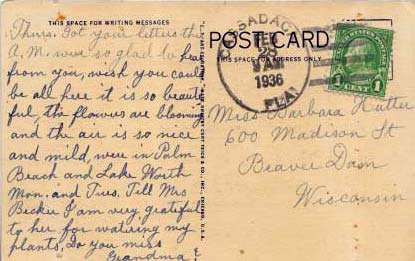 THIS SPACE FOR WRITING MESSAGES
Thurs. Got your letters this
A.M. were so glad to hear
from you, wish you could
be all here it is so beauti-
ful, the flowers are blooming
and the air is so nice
and mild, were in Palm
Beach and Lake Worth
Mon. and Tues. Tell Mrs
Becker I am very grateful
to her for watering my
plants, Do you miss
Grandma?
POST CARD
THIS SPACE FOR ADDRESS ONLY
CASSADAGA
FEB
28
9 AM
1936
FLA.
1 CENT 1
Miss Barbara Hutter
600 Madison St
Beaver Dam
Wisconsin